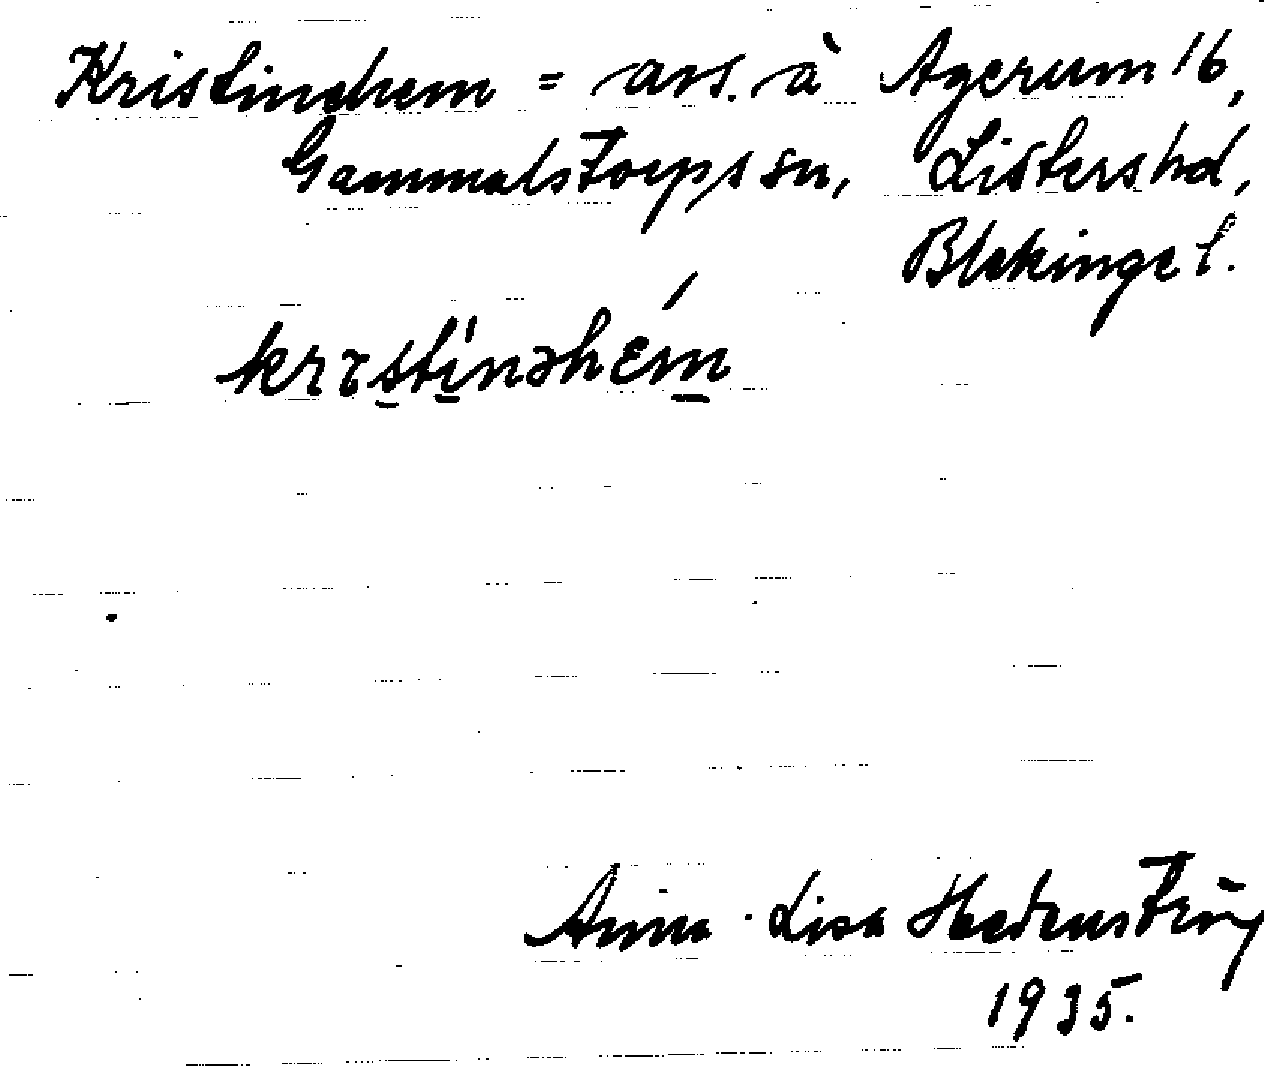 Kristinehem = avs. à Agerum 16,
Gammalstorps sn, Listers hd,
Blekinge l.
krɪstinəhém
Anna-Lisa Hedenström
1935.